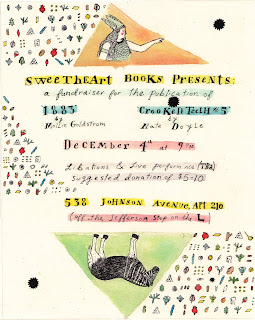 SWEETHEART BOOKS PRESENTS:
a fundraiser for the publication of
1883 CROOKED TEETH #5
by by
Mollie Goldstrom Nate Doyle
DECEMBER 4th at 9 PM
Libations & Live performance (TBA)
suggested donation of $5-10
538 JOHNSON AVENUE, APT 210
(off the Jefferson stop on the L)